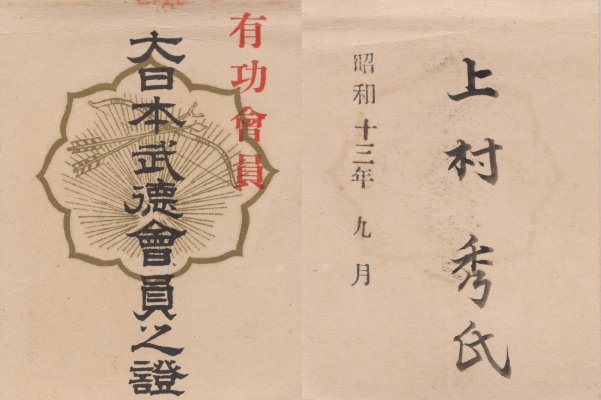 有功會員
大日本武德會員之證
上村秀氏
昭和十三年九月